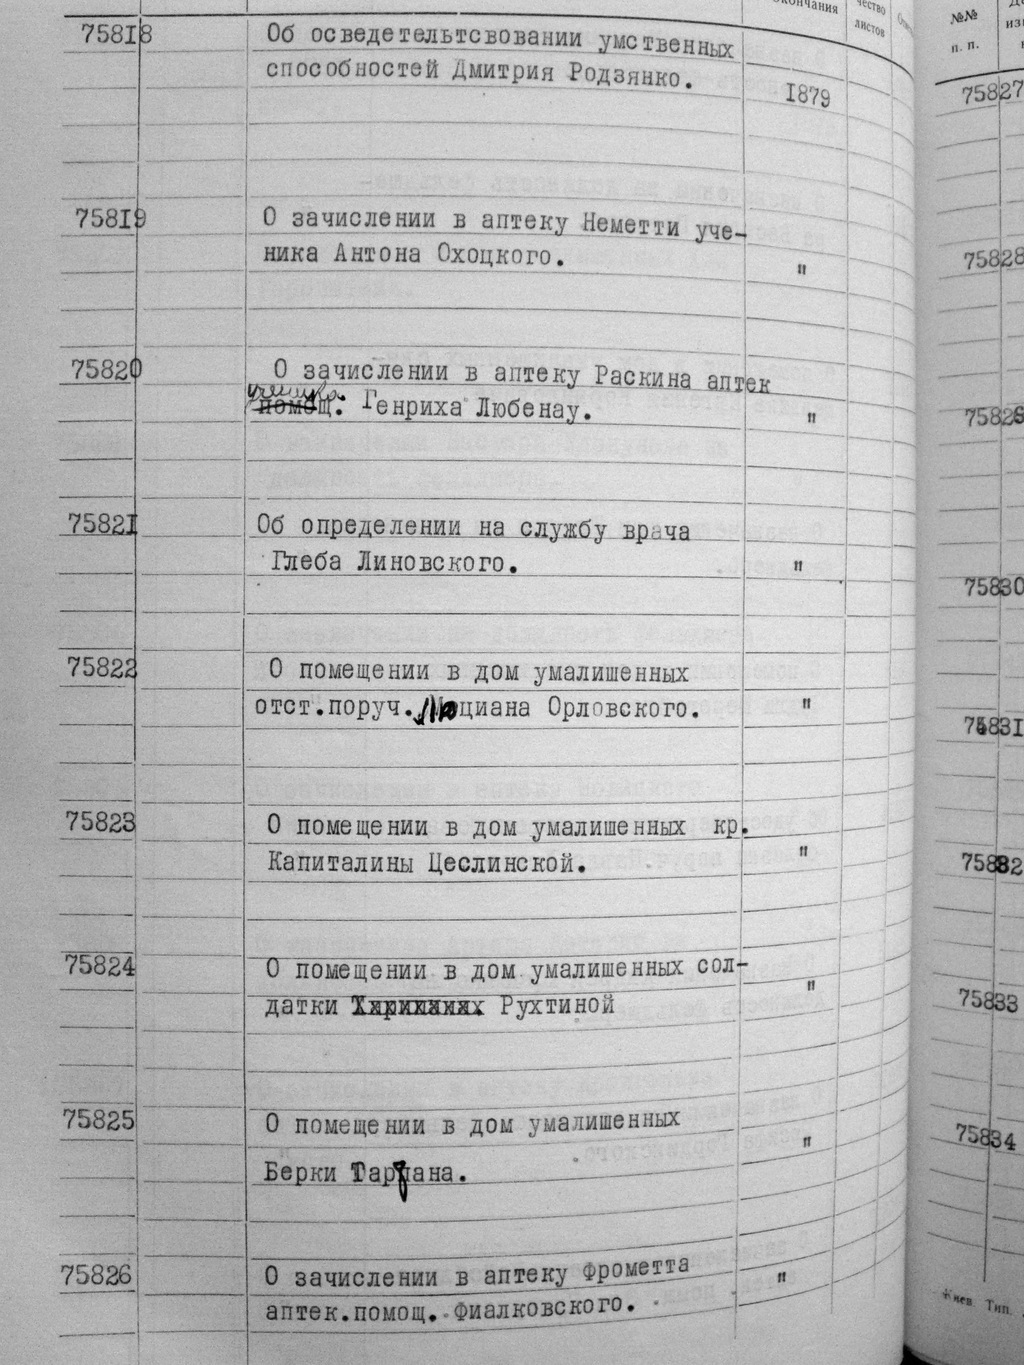 Окончания
чество
листов
75818
Об осведетельтсвовании умственных
способностей Дмитрия Родзянко.
1879
75819
О зачислении в аптеку Неметти уче-
ника Антона Охоцкого.
"
75820
О зачислении в аптеку Раскина аптек
ученика
помощ. Генриха Любенау.
"
75821
Об определении на службу врача
Глеба Линовского.
"
75822
О помещении в дом умалишенных
отст.поруч. циана Орловского.
"
75823
О помещении в дом умалишенных кр.
Капиталины Цеслинской.
"
75824
О помещении в дом умалишенных сол-
датки Рухтиной
"
75825
О помещении в дом умалишенных
Берки
"
75826
О зачислении в аптеку Фрометта
аптек.помощ. Фиалковского.
"
№№
п. п.
75827
75828
75829
75830
75831
75832
75833
75834
Киев Тип.